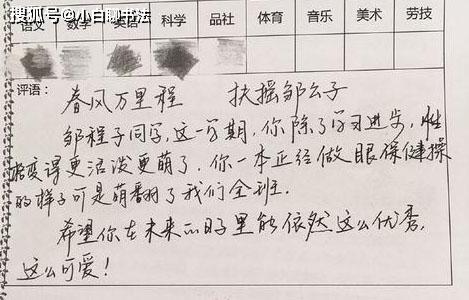 搜狐号@小白聊书法
语文 数学 英语 科学 品社 体育 音乐 美术 劳技
评语：
春风万里程 扶摇邹公子
邹程子同学，这一学期，你除了学习进步，性
格变得更活泼更萌了．你一本正经做眼保健操
的样子可是萌翻了我们全班．
希望你在未来的日子里能依然这么优秀，
这么可爱！